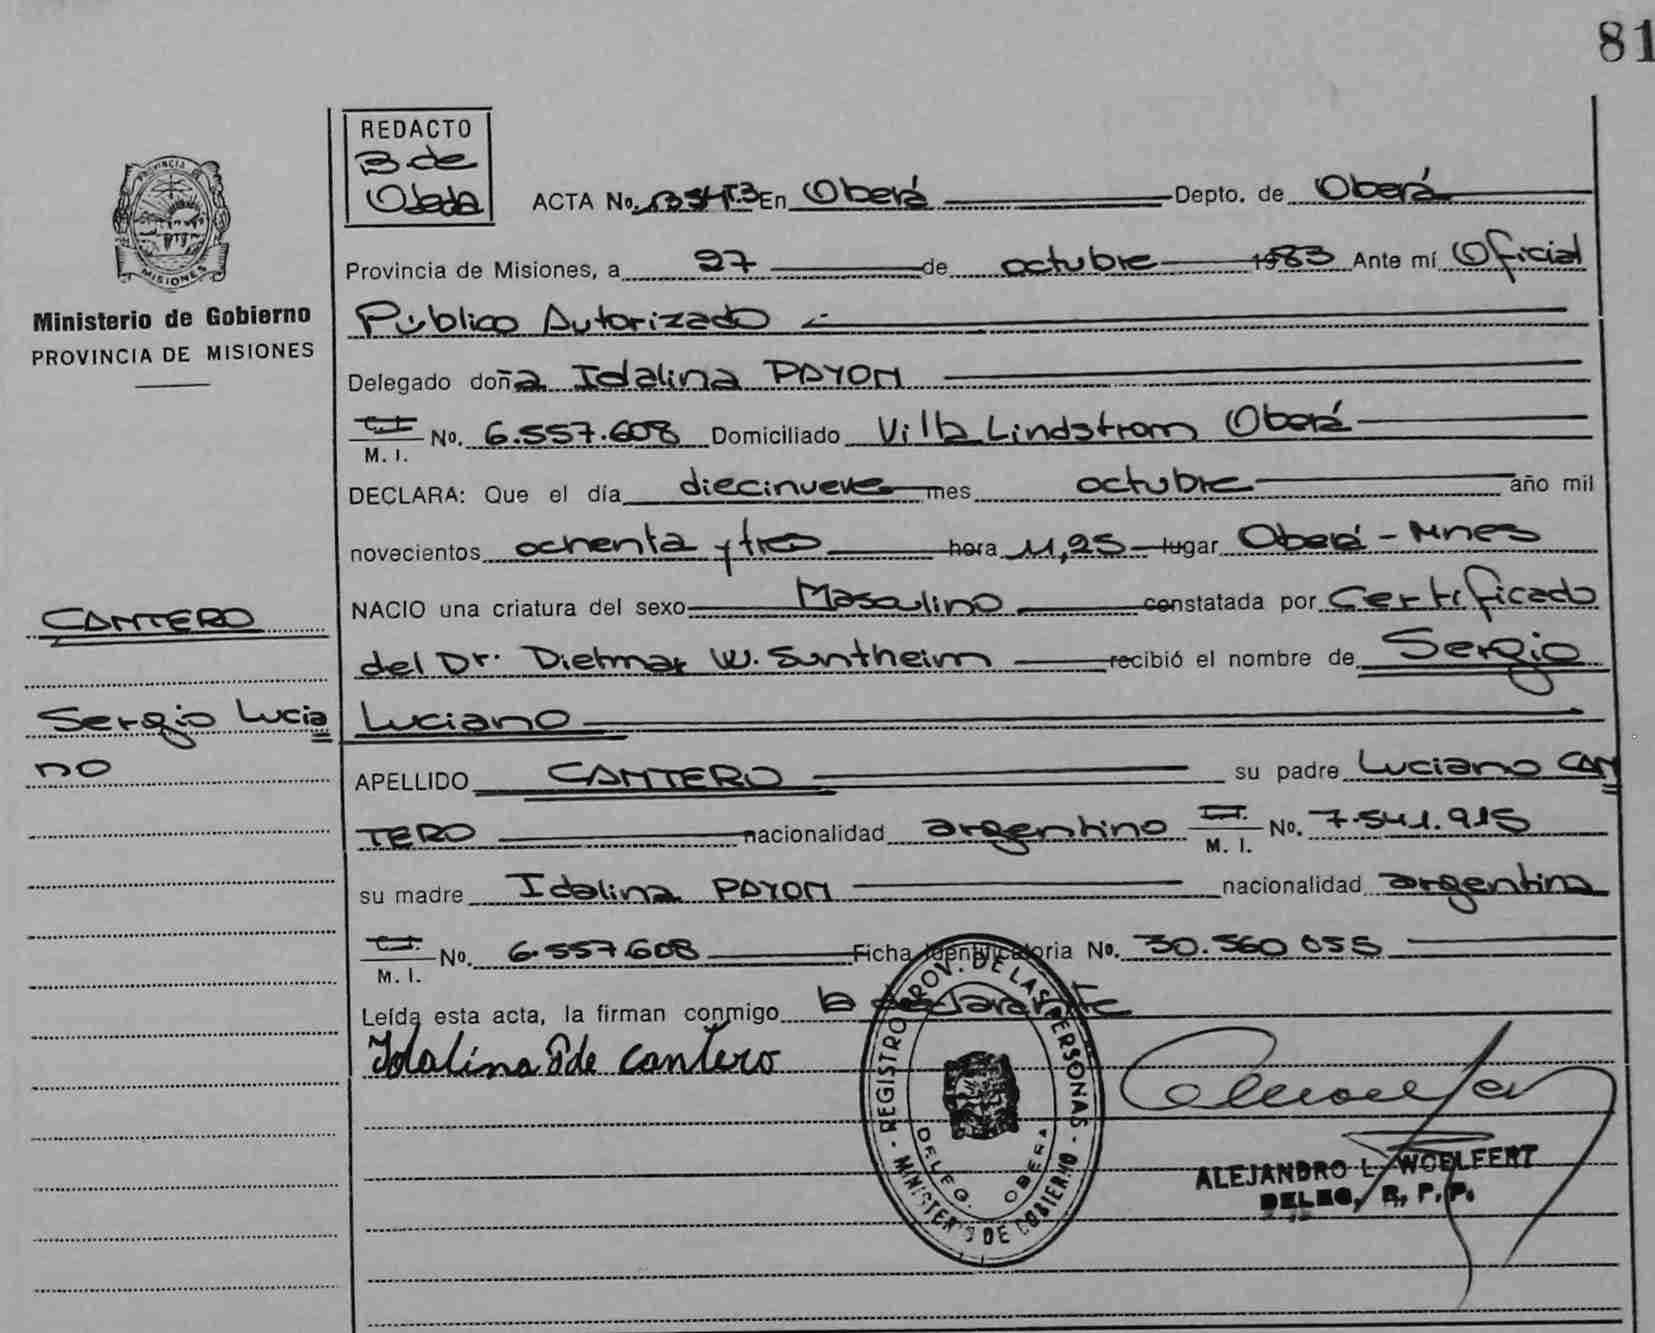 81
REDACTO
B. de
Ojeda
ACTA No. En Oberá Depto. de Oberá
Provincia de Misiones, a 27 de octubre 1983 Ante mí Oficial
Público Autorizado
Delegado doña Idalina PAYON
M. I. No. 6.557.608 Domiciliado Villa Lindstrom Oberá
DECLARA: Que el día diecinueve mes octubre año mil
novecientos ochenta y tres hora 11,25 lugar Oberá - Mnes
NACIO una criatura del sexo Masculino constatada por Certificado
del Dr. Dietmar W. Suntheim recibió el nombre de Sergio
Luciano
APELLIDO CANTERO su padre Luciano CAN
TERO nacionalidad argentino M. I. No. 7.541.915
su madre Idalina PAYON nacionalidad argentina
M. I. No. 6.557.608 Ficha Identificatoria No. 30.560 055
Leída esta acta, la firman conmigo la declarante
Idalina P de Cantero
PROVINCIA DE
MISIONES
Ministerio de Gobierno
PROVINCIA DE MISIONES
CANTERO
Sergio Lucia
no
REGISTRO PROV. DE LAS PERSONAS
MINISTERIO DE GOBIERNO
DELEG. OBERA
ALEJANDRO L. WOELFERT
DELEG. R. P. P.